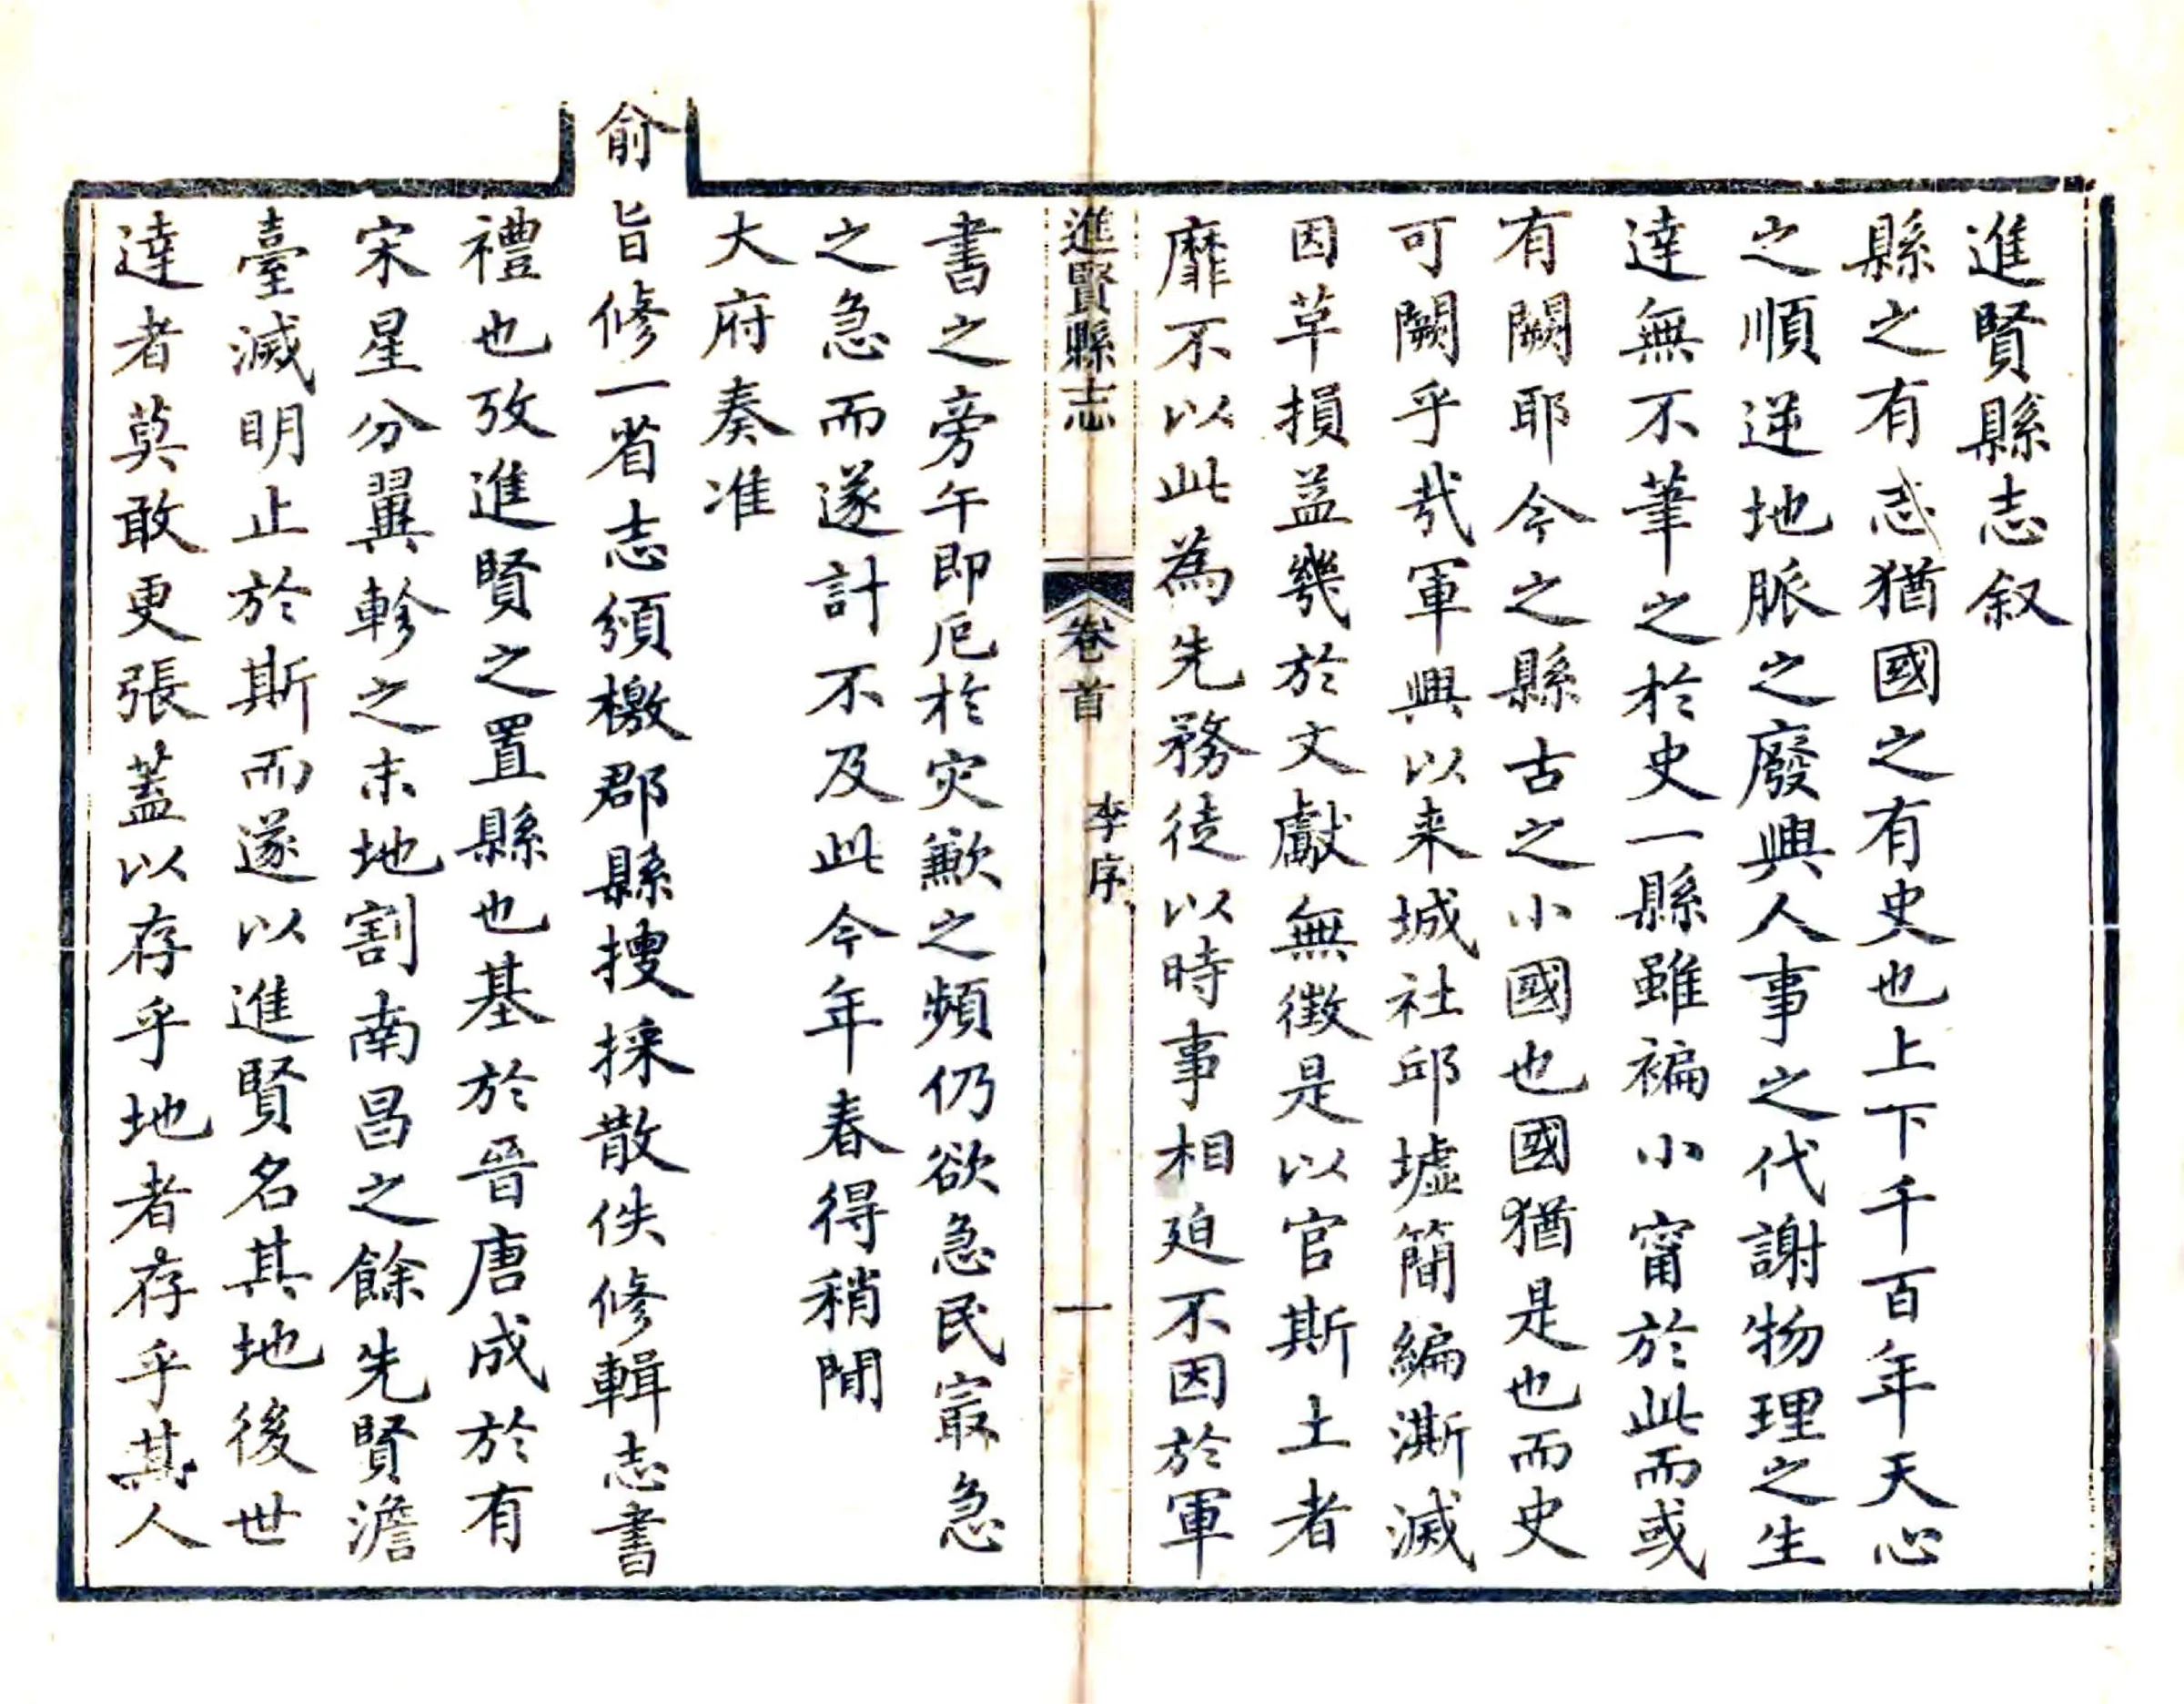 進賢縣志叙
縣之有志猶國之有史也上下千百年天心
之順逆地脈之廢興人事之代謝物理之生
達無不筆之於史一縣雖褊小甯於此而或
有闕耶今之縣古之小國也國猶是也而史
可闕乎哉軍興以来城社邱墟簡編澌滅
因革損益幾於文獻無徴是以官斯土者
靡不以此為先務徒以時事相廹不因於軍
進賢縣志
卷首
李序
一
書之旁午即厄於灾歉之頻仍欲急民㝡急
之急而遂計不及此今年春得稍閒
大府奏准
俞旨修一省志頒檄郡縣搜採散佚修輯志書
禮也攷進賢之置縣也基於晉唐成於有
宋星分翼軫之末地割南昌之餘先賢澹
臺滅明止於斯而遂以進賢名其地後世
達者莫敢更張蓋以存乎地者存乎其人